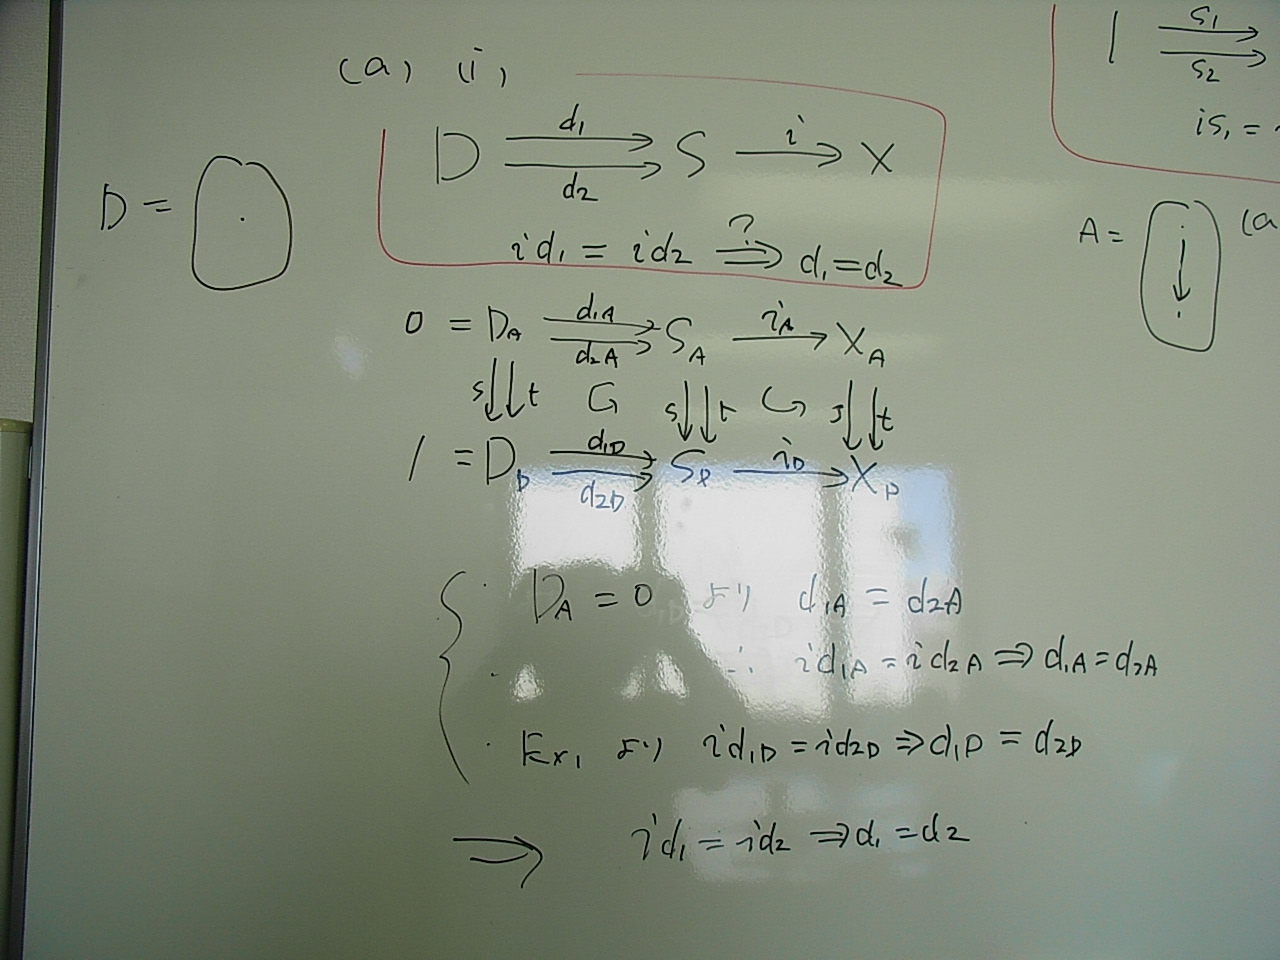 (a) (i)
D d1 d2 S i X
D =
id1 = id2 ?⇒ d1 = d2
0 = DA d1A d2A SA iA XA
s t s t s t
1 = DD d1D d2D SD iD XD
DA = 0 より d1A = d2A
∴ id1A = id2A ⇒ d1A = d2A
Ex1 より id1D = id2D ⇒ d1D = d2D
⇒ id1 = id2 ⇒ d1 = d2
1 s1 s2
is1 =
A = (a